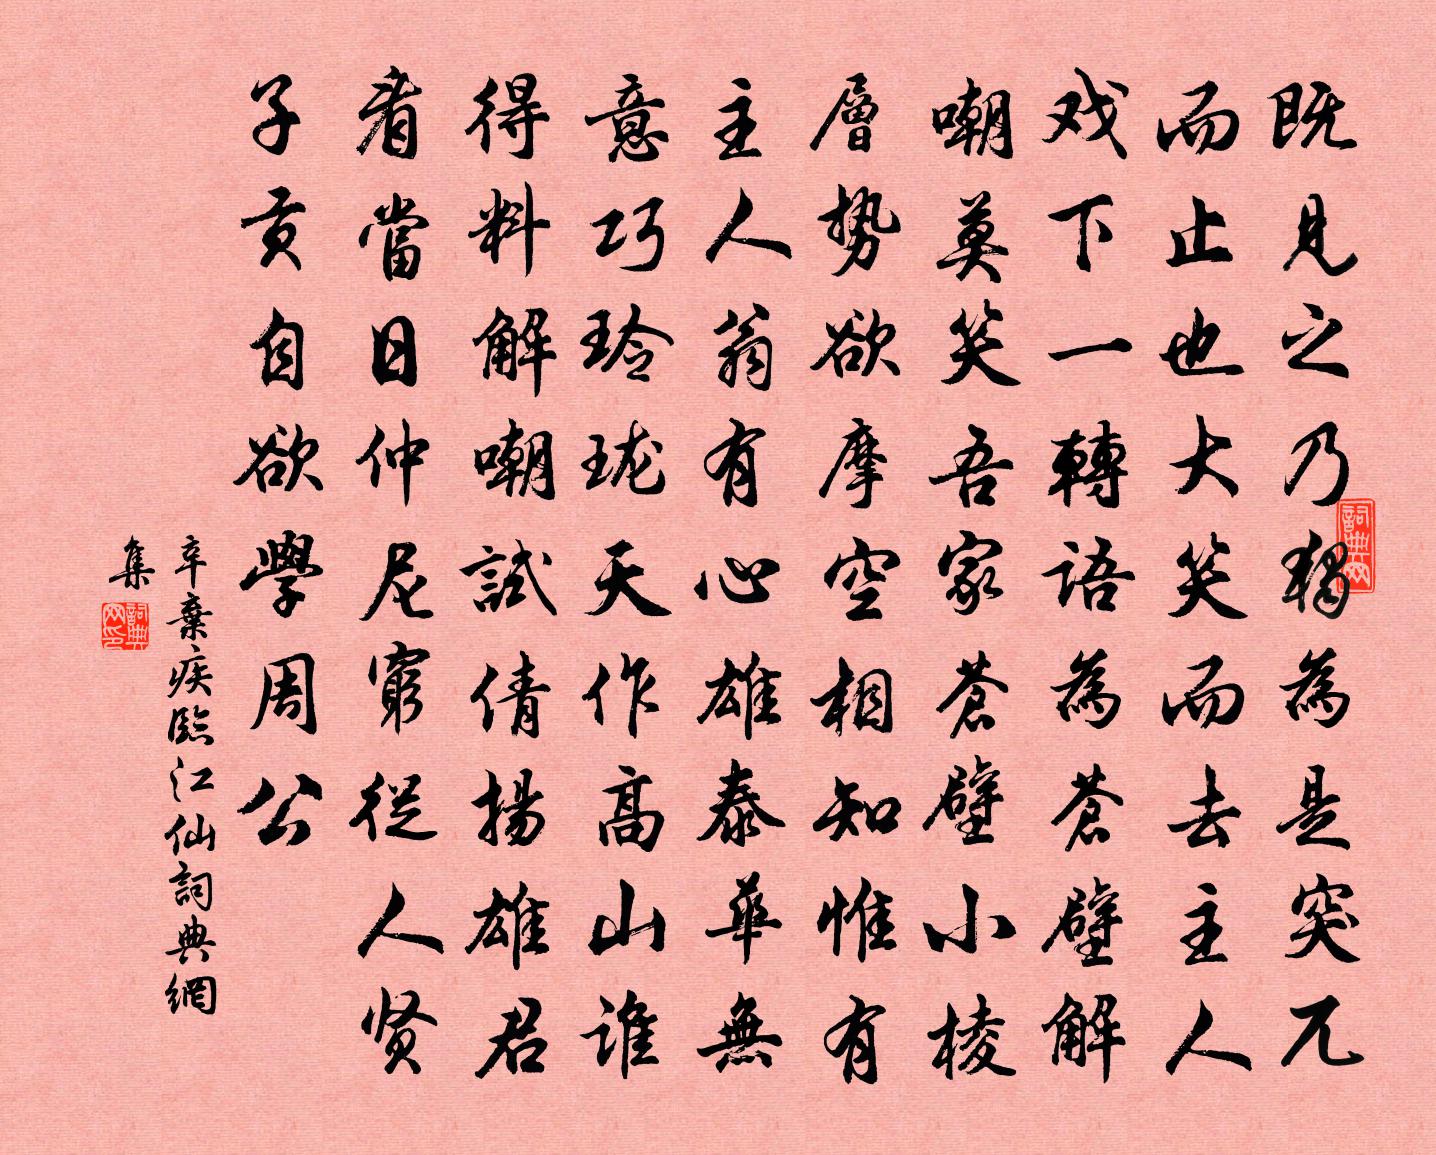 既見之乃獨為是突兀
而止也大笑而去主人
戏下一轉語為蒼壁解
嘲莫笑吾家蒼壁小棱
層勢欲摩空相知惟有
主人翁有心雄泰華無
意巧玲珑天作高山谁
得料解嘲試倩揚雄君
看當日仲尼窮從人贤
子贡自欲學周公
辛棄疾臨江仙詞典網
集
詞典网
詞典网印